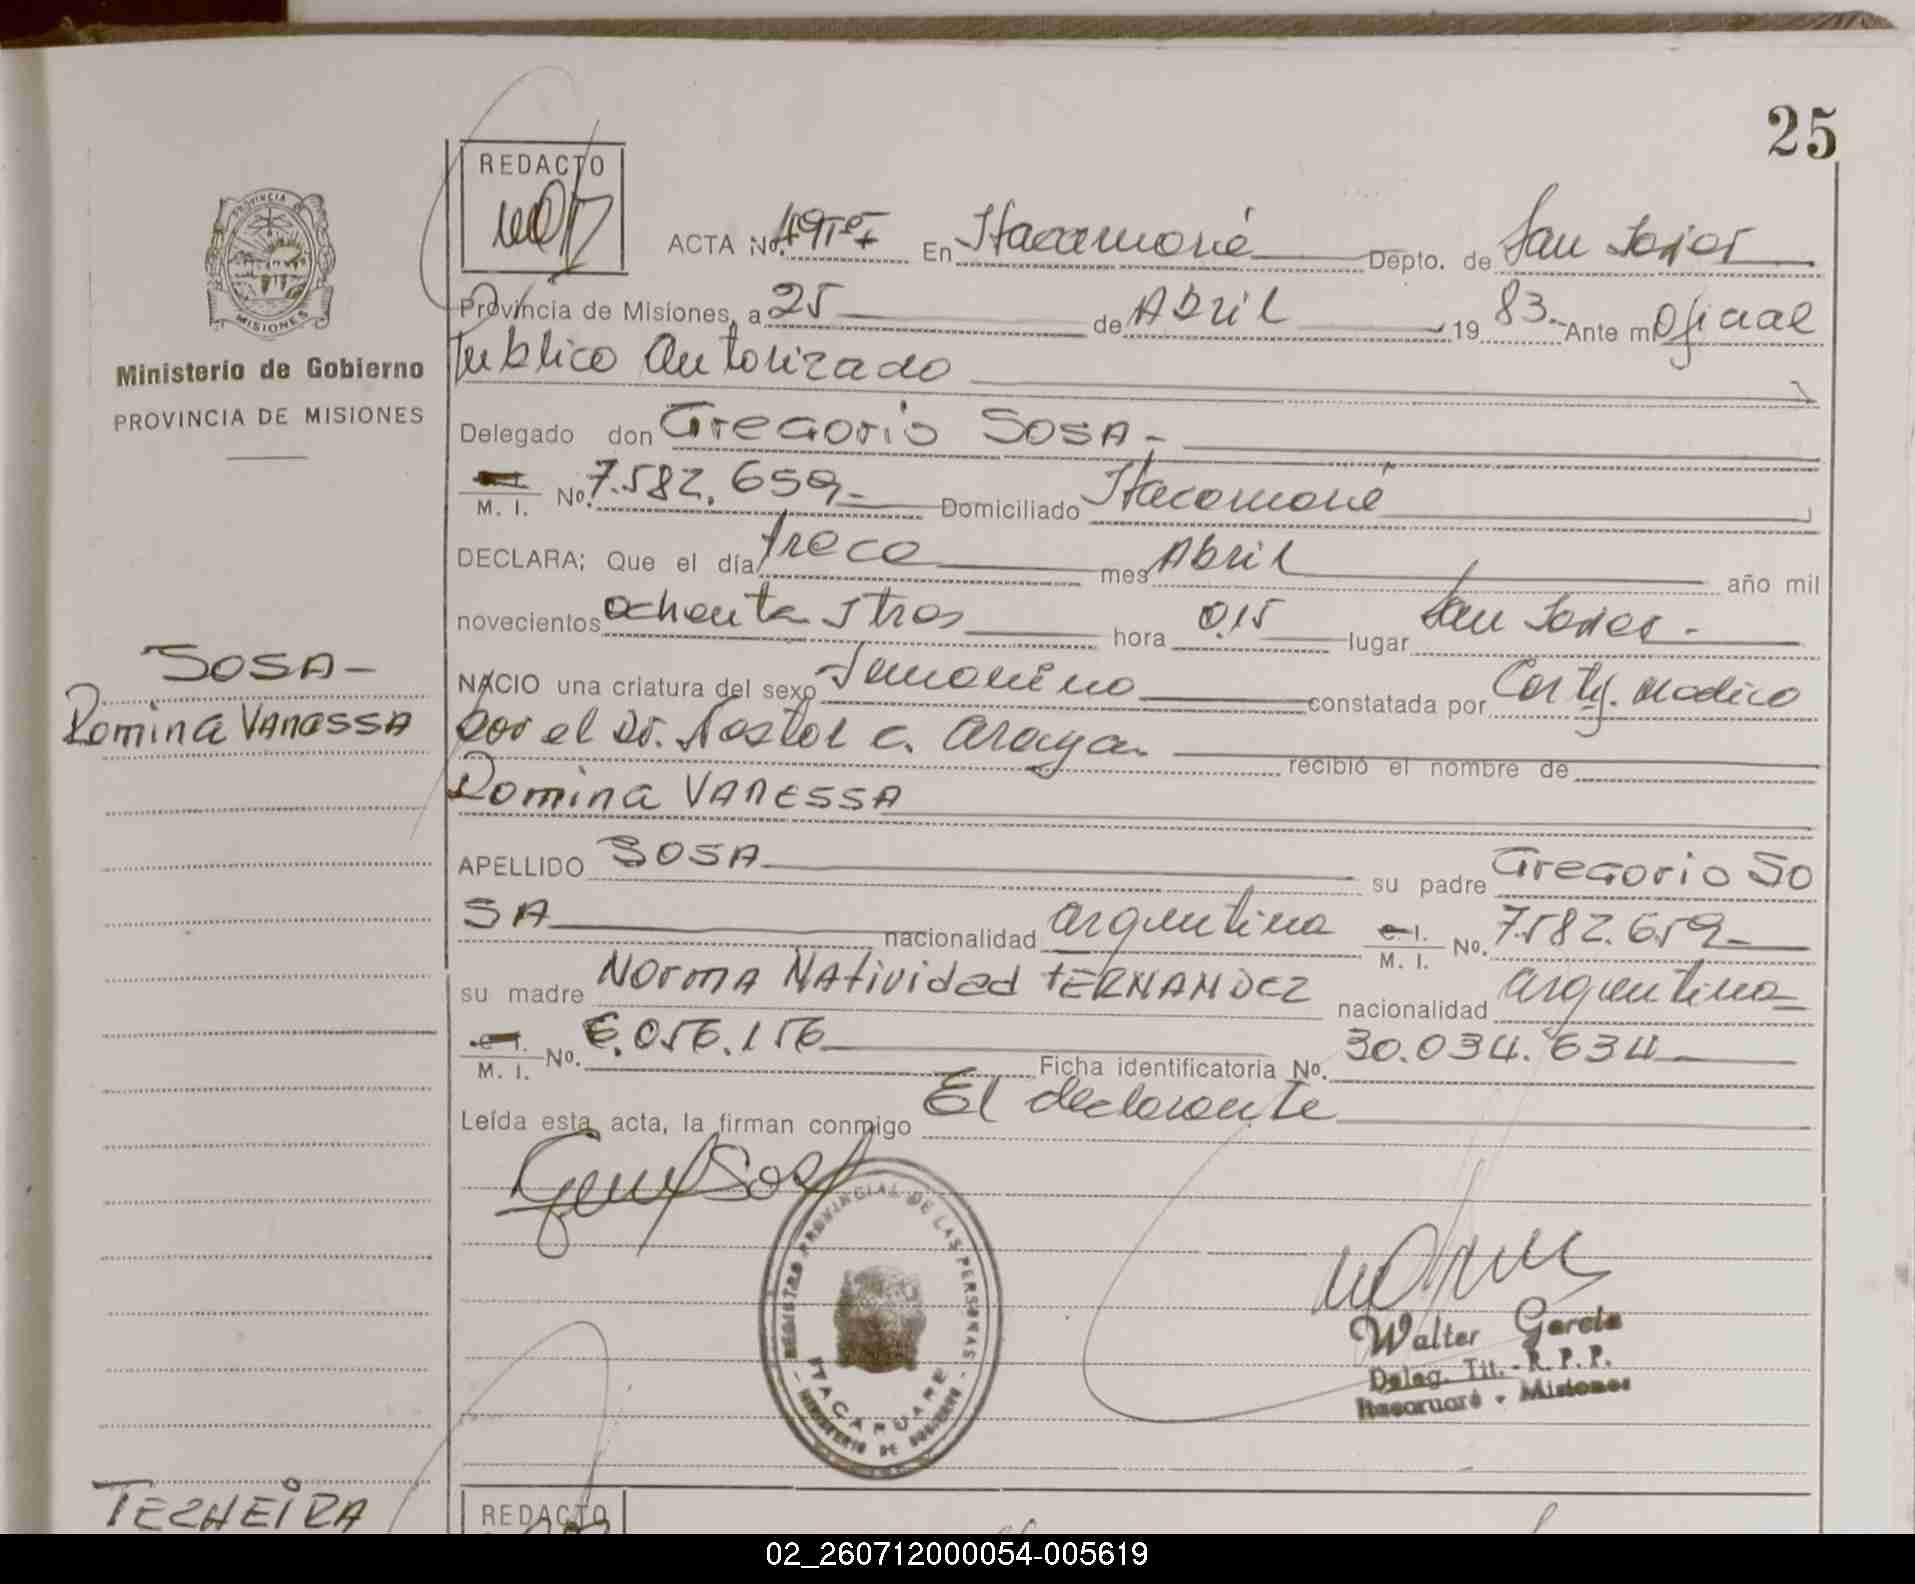 25
REDACTO
ACTA No. 49 En Itacaruaré Depto. de San Javier
Provincia de Misiones, a 25 de Abril 1983.- Ante mi Oficial
Publico Autorizado
Ministerio de Gobierno
PROVINCIA DE MISIONES
PROVINCIA
MISIONES
Delegado don Gregorio SOSA-
M. I. No. 7.582.659- Domiciliado Itacaruaré
DECLARA; Que el día trece mes Abril año mil
novecientos ochenta y tres hora 0,15 lugar San Javier-
SOSA-
Romina VANESSA
NACIO una criatura del sexo Femenino constatada por Certif. Medico
por el Dr. Nestor C. Araya. recibió el nombre de
Romina VANESSA
APELLIDO SOSA su padre Gregorio SO
SA nacionalidad argentina C. I. M. I. No. 7.582.659-
su madre Norma Natividad FERNANDEZ nacionalidad argentina
C. I. M. I. No. 6.056.156 Ficha identificatoria No. 30.034.634
Leída esta acta, la firman conmigo El declarante
REGISTRO PROVINCIAL DE LAS PERSONAS
ITACARUARE
MINISTERIO DE GOBIERNO
Walter García
Deleg. Tit. - R. P. P.
Itacaruaré - Misiones
TEXHEIRA
REDACTO
02_260712000054-005619